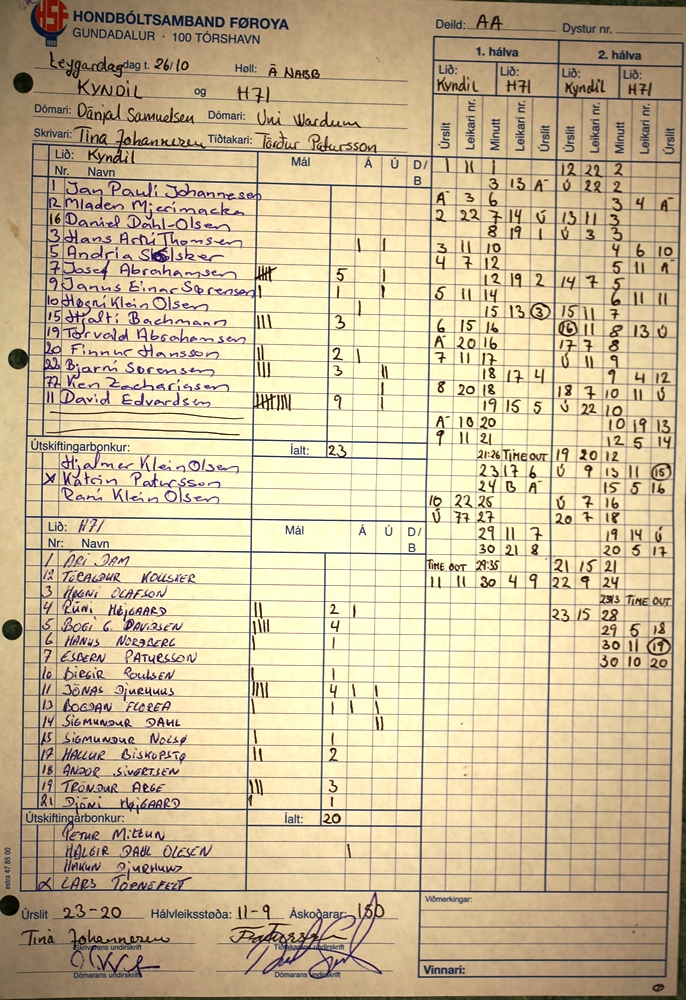 HSF
HONDBÓLTSAMBAND FØROYA
GUNDADALUR · 100 TÓRSHAVN
Deild: AA Dystur nr.
Leygardag dag t. 26/10 Høll: Á NABB
KYNDIL og H71
Dómari: Dánjal Samuelsen Dómari: Uni Wardum
Skrivari: Tina Johannesen Tíðtakari: Tórður Patursson
1. hálva 2. hálva
Lið: Kyndil Lið: H71 Lið: Kyndil Lið: H71
Úrslit Leikari nr. Minutt Leikari nr. Úrslit Úrslit Leikari nr. Minutt Leikari nr. Úrslit
Lið: Kyndil
Nr. Navn Mál Á Ú D/B
1 Jan Pauli Johannesen
12 Mladen Mjerimacka
16 Daniel Dahl-Olsen
3 Hans Arni Thomsen | |
5 Andria Skølsker
7 Josef Abrahamsen 5 |
9 Janus Einar Sørensen | 1 |
10 Høgni Klein Olsen |
15 Hjalti Bachmann ||| 3
19 Torvald Abrahamsen
20 Finnur Hansson || 2 |
22 Bjarni Sørensen ||| 3 ||
77 Ken Zachariasen |
11 David Edvardsen 9 |
Útskiftingarbonkur: Íalt: 23
Hjalmer Klein Olsen
x Katrin Patursson
Rani Klein Olsen
Lið: H71
Nr: Navn Mál Á Ú D/B
1 ARI DAM
12 TÓRALDUR KOLLSKER
3 HØGNI OLAFSON
4 RÚNI HØJGAARD || 2 |
5 BOGI G. DAVIDSEN |||| 4
6 HANUS NORDBERG | 1
7 ESBERN PATURSSON
10 BIRGIR POULSEN | 1
11 JÓNAS DJURHUUS |||| 4 | |
13 BOGDAN FLOREA | 1 | |
14 SIGMUNDUR DAHL ||
15 SIGMUNDUR NOLSØ | 1
17 HALLUR BISKOPSTØ || 2
18 ANDOR SIVERTSEN
19 TRÓNDUR ARGE ||| 3
21 DJÓNI HØJGAARD | 1
Útskiftingarbonkur: Íalt: 20
PETUR MITTUN
HALGIR DAHL OLESEN |
HAKUN DJURHUUS
x LARS TÖRNEFELT
Úrslit 23-20 Hálvleiksstøða: 11-9 Áskoðarar: 150
Tina Johannesen
Skrivarans undirskrift Tíðtakarans undirskrift
Dómarans undirskrift Dómarans undirskrift
1 11 1
3 13 A
A 3 6
2 22 7 14 Ú
8 19 1
3 11 10
4 7 12
12 19 2
5 11 14
15 13 3
6 15 16
A 20 16
7 11 17
18 17 4
8 20 18
19 15 5
A 10 20
9 11 21
21:26 TIME OUT
23 17 6
24 B A
10 22 25
Ú 77 27
29 11 7
30 21 8
TIME OUT 29:35
11 11 30 4 9
12 22 2
Ú 22 2
3 4 A
13 11 3
Ú 3 3
4 6 10
5 11 A
14 7 5
6 11 11
15 11 7
16 11 8 13 Ú
17 7 8
Ú 11 9
9 4 12
18 7 10 11 Ú
Ú 22 10
10 19 13
12 5 14
19 20 12
Ú 9 13 11 15
15 5 16
Ú 7 16
20 7 18
19 14 Ú
20 5 17
21 15 21
22 9 24
TIME OUT
23 15 28
29 5 18
30 11 19
30 10 20
Viðmerkingar:
Vinnari:
estra 47 85 00